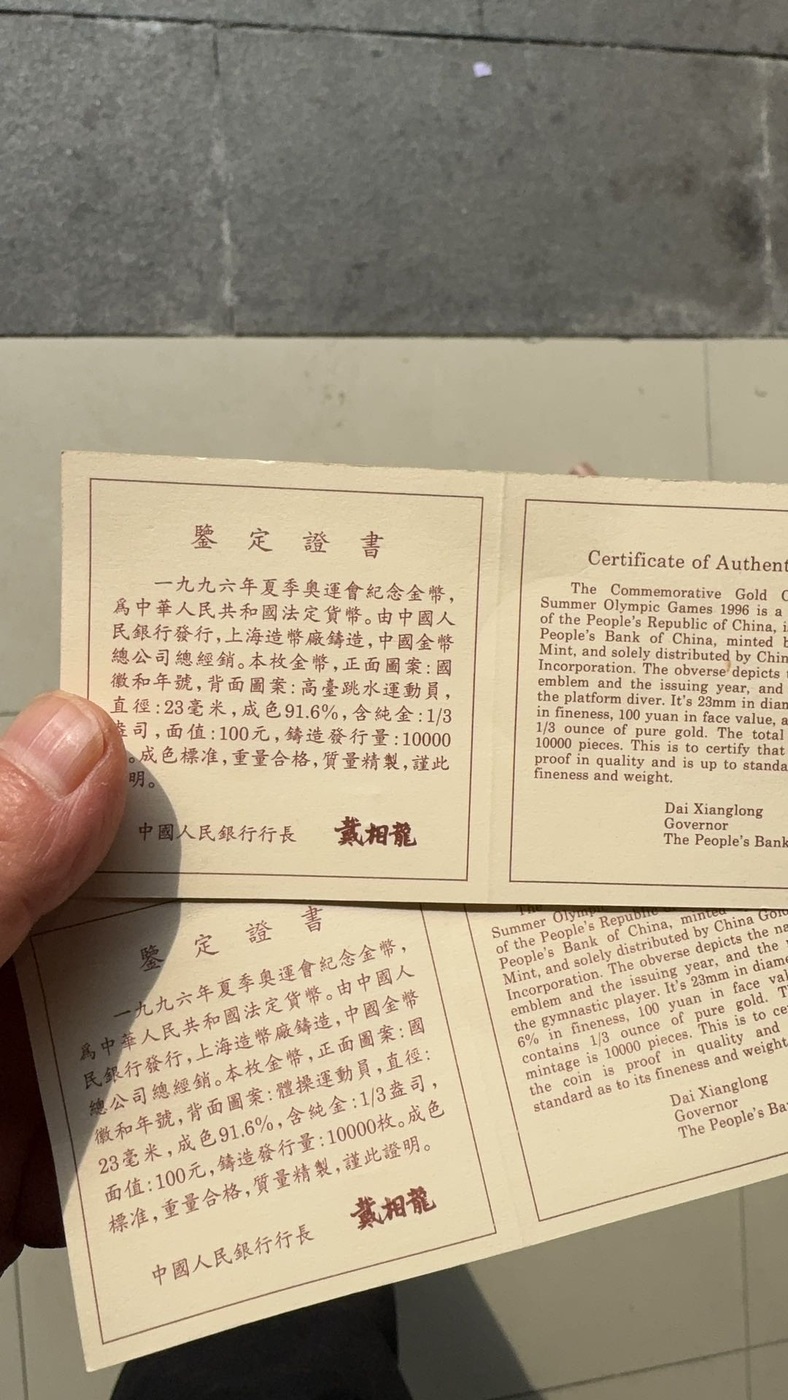 鑒定證書
一九九六年夏季奧運會紀念金幣，
爲中華人民共和國法定貨幣。由中國人
民銀行發行，上海造幣廠鑄造，中國金幣
總公司總經銷。本枚金幣，正面圖案：國
徽和年號，背面圖案：高臺跳水運動員，
直徑：23毫米，成色91.6%，含純金：1/3
盎司，面值：100元，鑄造發行量：10000
。成色標准，重量合格，質量精製，謹此
明。
中國人民銀行行長 戴相龍
Certificate of Authent
The Commemorative Gold C
Summer Olympic Games 1996 is a
of the People's Republic of China, i
People's Bank of China, minted b
Mint, and solely distributed by Chin
Incorporation. The obverse depicts
emblem and the issuing year, and
the platform diver. It's 23mm in diam
in fineness, 100 yuan in face value, a
1/3 ounce of pure gold. The total
10000 pieces. This is to certify that
proof in quality and is up to standa
fineness and weight.
Dai Xianglong
Governor
The People's Bank
鑒定證書
一九九六年夏季奧運會紀念金幣，
爲中華人民共和國法定貨幣。由中國人
民銀行發行，上海造幣廠鑄造，中國金幣
總公司總經銷。本枚金幣，正面圖案：國
徽和年號，背面圖案：體操運動員，直徑：
23毫米，成色91.6%，含純金：1/3盎司，
面值：100元，鑄造發行量：10000枚。成色
標准，重量合格，質量精製，謹此證明。
中國人民銀行行長 戴相龍
Summer Olympic
of the People's Republic
People's Bank of China, minted
Mint, and solely distributed by China Gold
Incorporation. The obverse depicts the na
emblem and the issuing year, and the
the gymnastic player. It's 23mm in diame
6% in fineness, 100 yuan in face val
contains 1/3 ounce of pure gold. T
mintage is 10000 pieces. This is to ce
the coin is proof in quality and
standard as to its fineness and weight
Dai Xianglong
Governor
The People's Ba